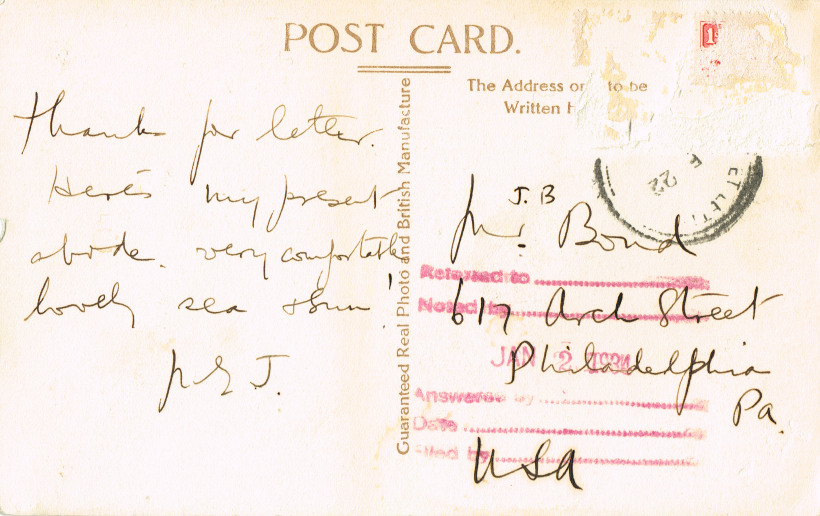 POST CARD.
The Address on to be
Written H
1
22
Thanks for letter.
Here's my present
abode. very comfortable
lovely sea & sun!
Guaranteed Real Photo and British Manufacture
J.B
Mr. Bond
617 Arch Street
Philadelphia
Pa.
USA
Referred to
Noted by
JAN 2 1934
Answered by
Date
Filed by